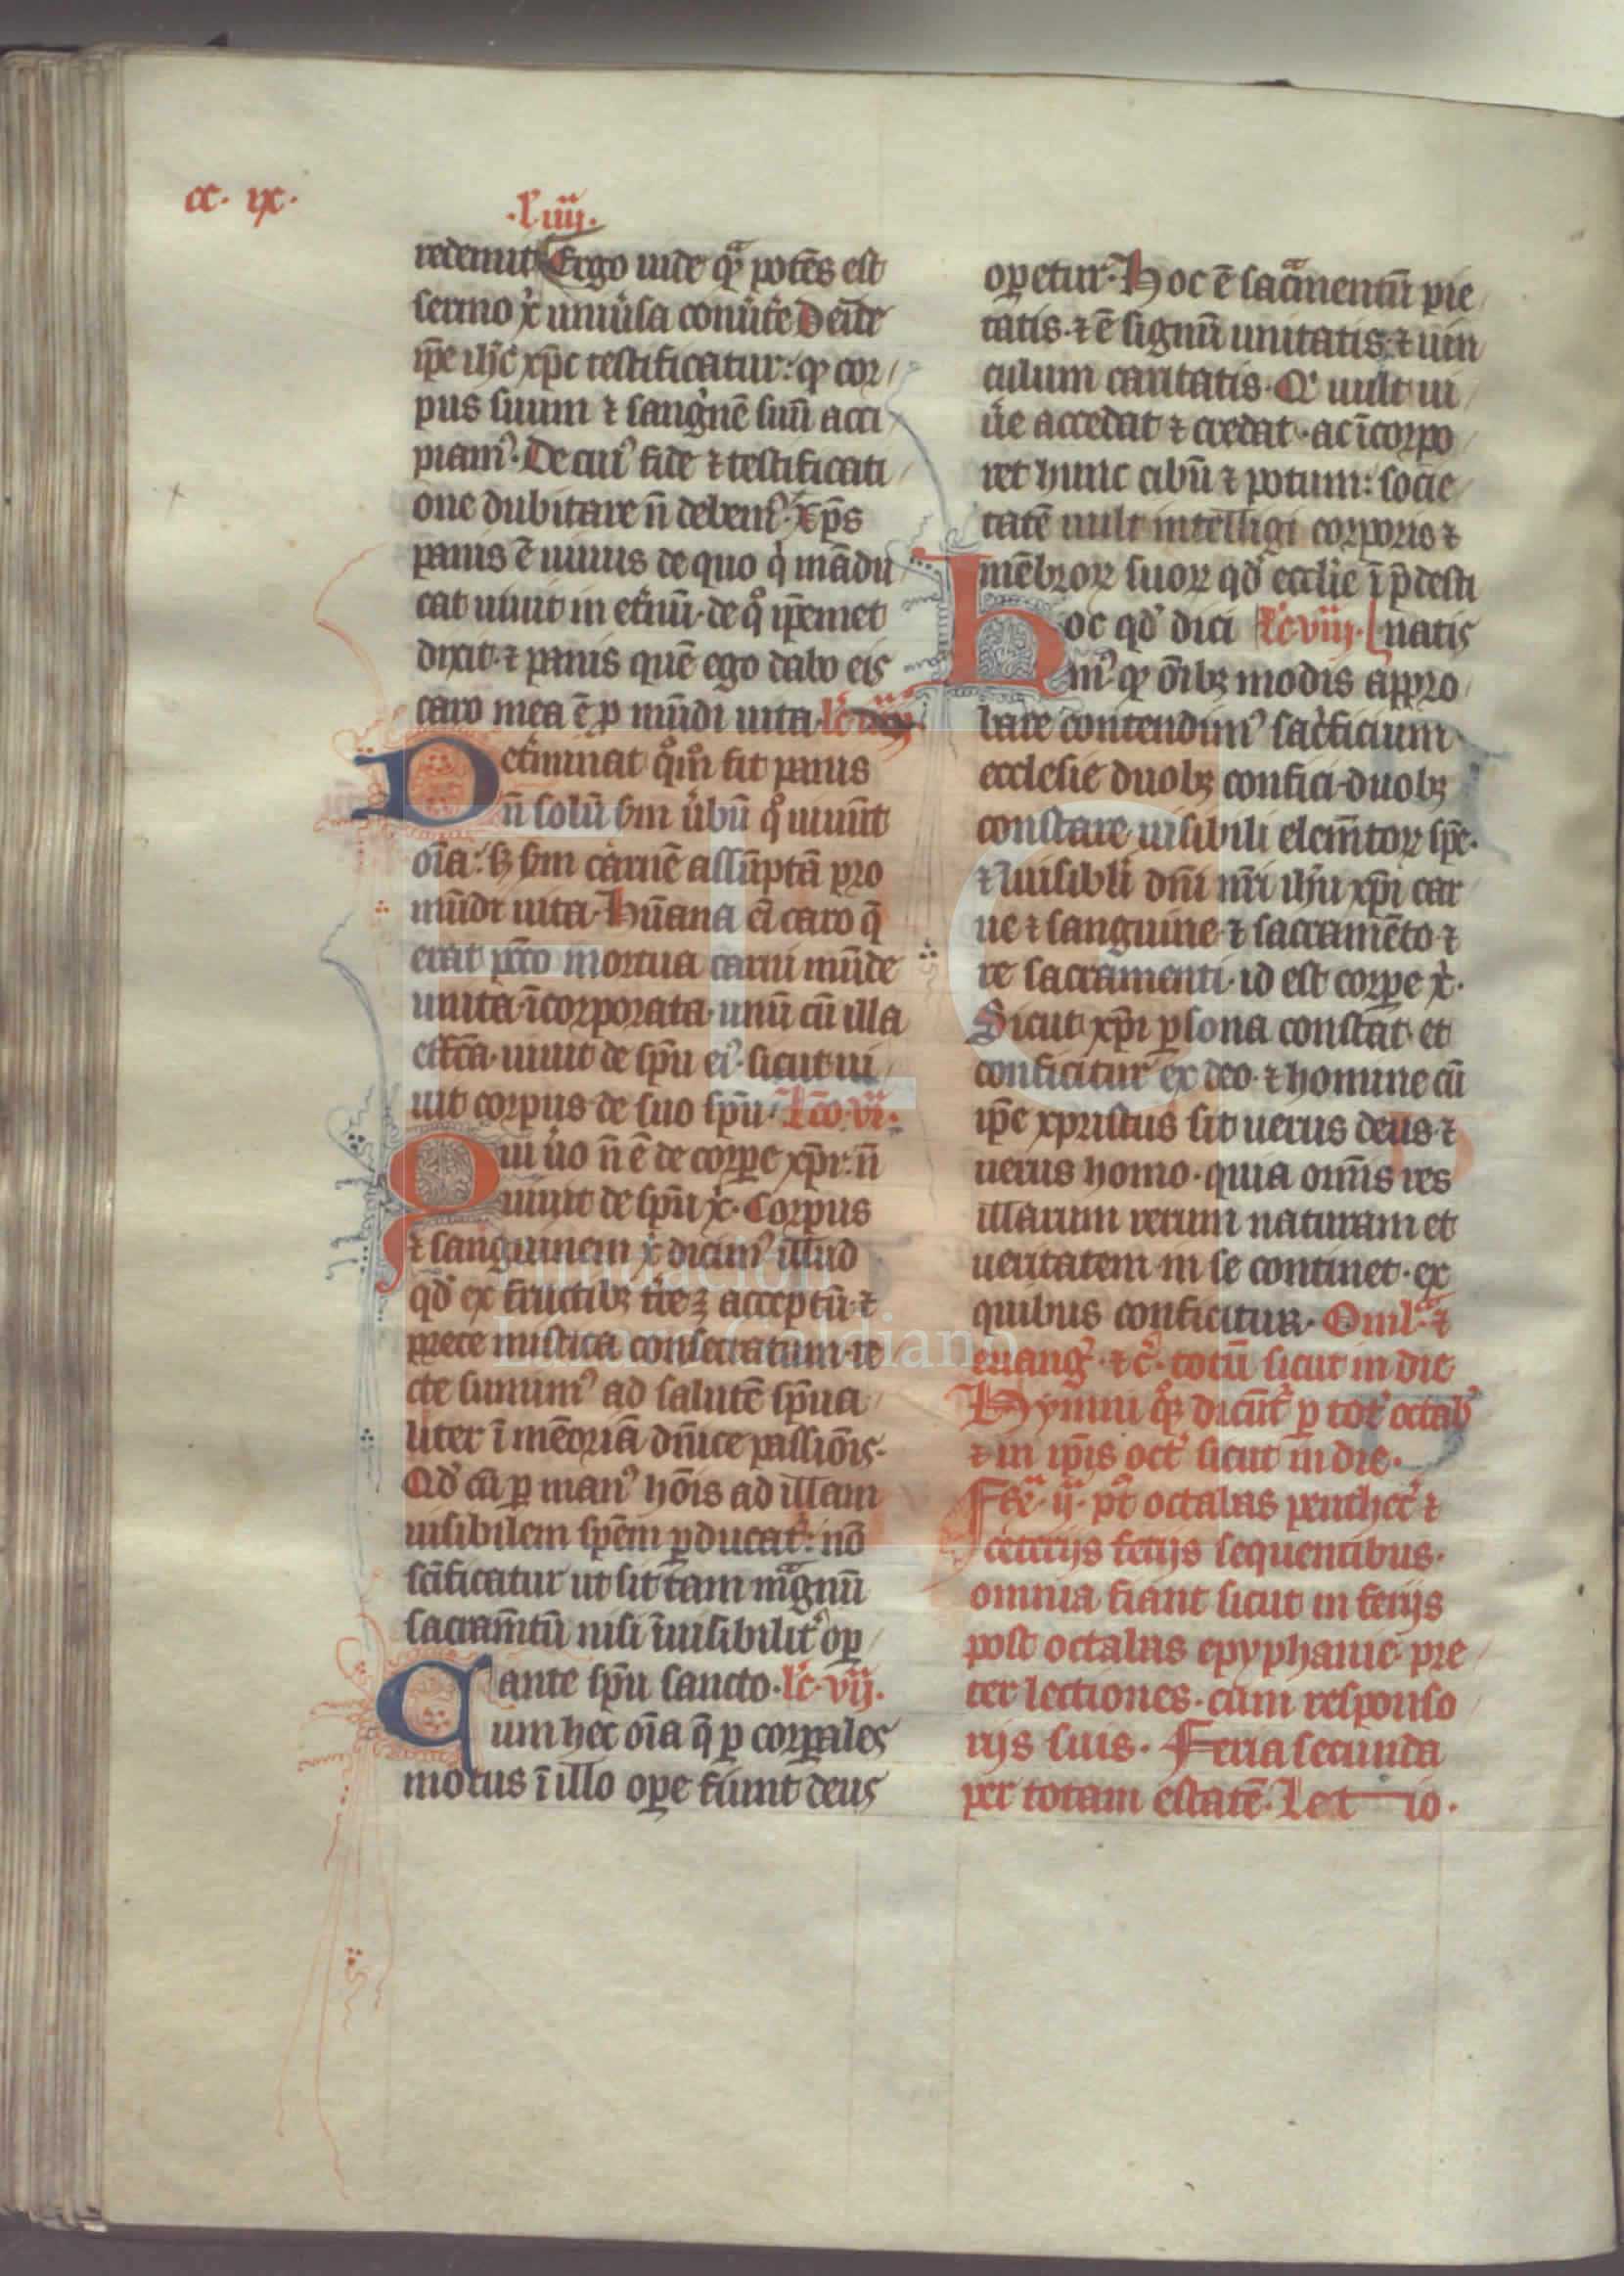 cc. ix.
.l. iiij.
redemit Ergo uide qᷓ potēs est
sermo x̓ uniůsa conůt̓e Deīde
ip̄e ihc̄ xp̄c testificatur: ꝙ cor
pus suum ⁊ sangͥnē suū acci
piamꝰ. De cuiꝰ fide ⁊ testificati
one dubitare ñ debemꝰ. Xp̄s
panis ē uiuus de quo qͥ mādu
cat uiuit in et̓nū. de qͦ ip̄emet
dixit. ⁊ panis quē ego dabo eis
caro mea ē p mūdi uita. lc̄
Det̓minat qͦm̄ sit panis
ñ solū sm̄ ůbū qͦ uiuūt
oīa: sꝫ sm̄ carnē assūptā pro
mūdi uita. Hūana ei caro q̄
erat pctō mortua carni mūde
unita īcorporata. unū cū illa
eff̄ca. uiuit de sp̄u eiꝰ. sicut ui
uit corpus de suo sp̄u. lc̄o. vi.
Qui ůo ñ ē de corpe xp̄i: ñ
uiuit de sp̄u x̓. Corpus
⁊ sanguinem x̓ dicimꝰ illud
qd̓ ex fructibꝫ tr̓e acceptū ⁊
prece mistica consecratum. re
cte sumimꝰ ad salutē sp̄ua
liter ī mēoriā dn̄ice passiōis.
Qd̓ cū p manꝰ hōis ad illam
uisibilem sp̄em pducat᷑: nō
scīficatur ut sit tam mᷓgnū
sacram̄tū nisi īuisibilit̓ op
ante sp̄u sancto. lc̄. vij.
Cum hec oīa q̄ p corpales
motus ī illo ope fiunt deus
opetur. Hoc ē sacᷓmentū pie
tatis. ⁊ ē signū unitatis. ⁊ uin
culum caritatis. Qͥ uult ui
ůe accedat ⁊ credat. ac īcorpo
ret hunc cibū ⁊ potum: socie
tatē uult intelligi corporis ⁊
mēbroꝝ suoꝝ qd̓ ecclīe ī p̄desti
Hoc qd̓ dici lc̄. viij. natis
mꝰ ꝙ ōibꝫ modis appro
bare contendimꝰ sacͥficium
ecclesie duobꝫ confici. duobꝫ
constare. uisibili elem̄toꝝ sp̄e.
⁊ īuisibili dn̄i nr̄i ihū xp̄i car
ne ⁊ sanguine. ⁊ sacramēto. ⁊
re sacramenti. id est corpe x̓.
Sicut xp̄i psona constat et
conficitur ex deo. ⁊ homine cū
ip̄e xpristus sit uerus deus ⁊
uerus homo. quia omīs res
illarum rerum naturam et
ueritatem in se continet. ex
quibus conficitur. Omil. ⁊
euangͥ. ⁊ c̓. totū sicut in die
Hymni q̓ dicūt᷑ p tot̓ octab̓
⁊ in ip̄is oct̓ sicut in die.
Fᷓe. ij. pꝰt octabas penthec̓ ⁊
ceterijs ferijs sequentibus.
omnia fiant sicut in ferijs
post octabas epyphanie. pre
ter lectiones. cum responso
rijs suis. Feria secunda
per totam estatē. Lct io.